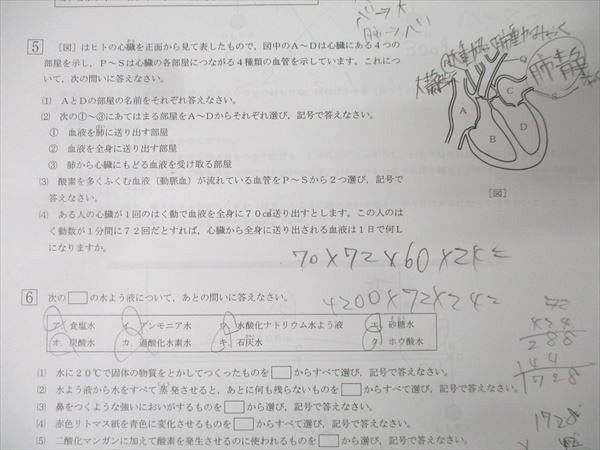 パ→大
肺→パ
5 〔図〕はヒトの心臓を正面から見て表したもので,図中のA~Dは心臓にある4つの
部屋を示し,P~Sは心臓の各部屋につながる4種類の血管を示しています。これにつ
いて,次の問いに答えなさい。
(1) AとDの部屋の名前をそれぞれ答えなさい。
(2) 次の①~③にあてはまる部屋をA~Dからそれぞれ選び,記号で答えなさい。
① 血液を肺に送り出す部屋
② 血液を全身に送り出す部屋
③ 肺から心臓にもどる血液を受け取る部屋
(3) 酸素を多くふくむ血液(動脈血)が流れている血管をP~Sから2つ選び,記号で
答えなさい。
(4) ある人の心臓が1回のはく動で血液を全身に70㎤送り出すとします。この人のは
く動数が1分間に72回だとすれば,心臓から全身に送り出される血液は1日で何L
になりますか。
A
B
C
D
〔図〕
70×72×60×24=
4200×72×24=
6 次の□の水よう液について,あとの問いに答えなさい。
ア.食塩水 イ.アンモニア水 ウ.水酸化ナトリウム水よう液 エ.砂糖水
オ.炭酸水 カ.過酸化水素水 キ.石灰水 ク.ホウ酸水
(1) 水に20℃で固体の物質をとかしてつくったものを□からすべて選び,記号で答えなさい。
(2) 水よう液から水をすべて蒸発させると,あとに何も残らないものを□からすべて選び,記号で答えなさい。
(3) 鼻をつくような強いにおいがするものを□から選び,記号で答えなさい。
(4) 赤色リトマス紙を青色に変化させるものを□からすべて選び,記号で答えなさい。
(5) 二酸化マンガンに加えて酸素を発生させるのに使われるものを□から選び,記号で答えなさい。
72
×24
288
144
1728
1728